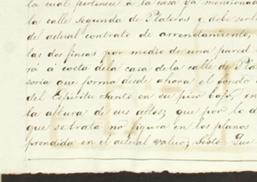 la cual pertenece a la casa ya mencionada
la calle segunda de Plateros y debe
del actual contrato de arrendamiento,
las dos fincas por medio de una pared
rá á costa de la casa de la calle de Pla
soria que forma desde ahora el fondo
del Espiritu Santo en su piso bajo, en
la altura de sus
que se trata no figura en los planos
prendida en el actual